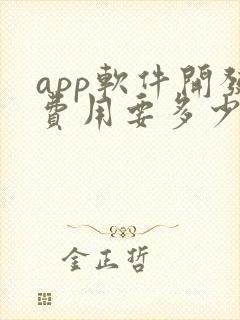 app軟件開發
費用要多少
金正哲